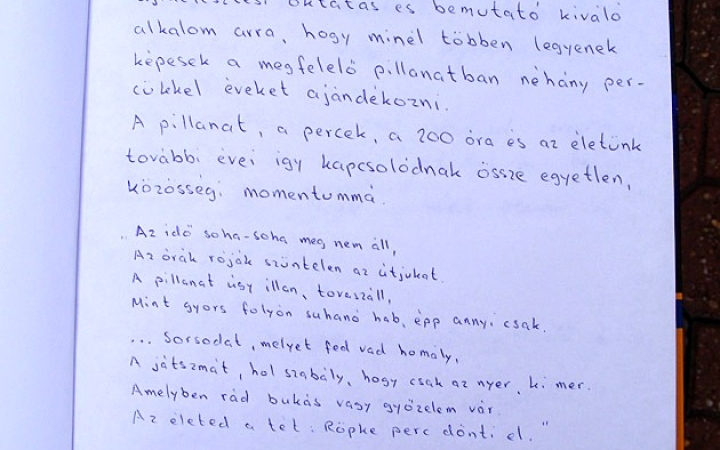 újraélesztési oktatás és bemutató kiváló
alkalom arra, hogy minél többen legyenek
képesek a megfelelő pillanatban néhány per-
cükkel éveket ajándékozni.
A pillanat, a percek, a 200 óra és az életünk
további évei így kapcsolódnak össze egyetlen,
közösségi momentummá.
„Az idő soha-soha meg nem áll,
Az órák róják szüntelen az útjukat.
A pillanat úgy illan, tovaszáll,
Mint gyors folyón suhanó hab, épp annyi csak.
... Sorsodat, melyet fed vad homály,
A játszmát, hol szabály, hogy csak az nyer, ki mer.
Amelyben rád bukás vagy győzelem vár.
Az életed a tét: Röpke perc dönti el."